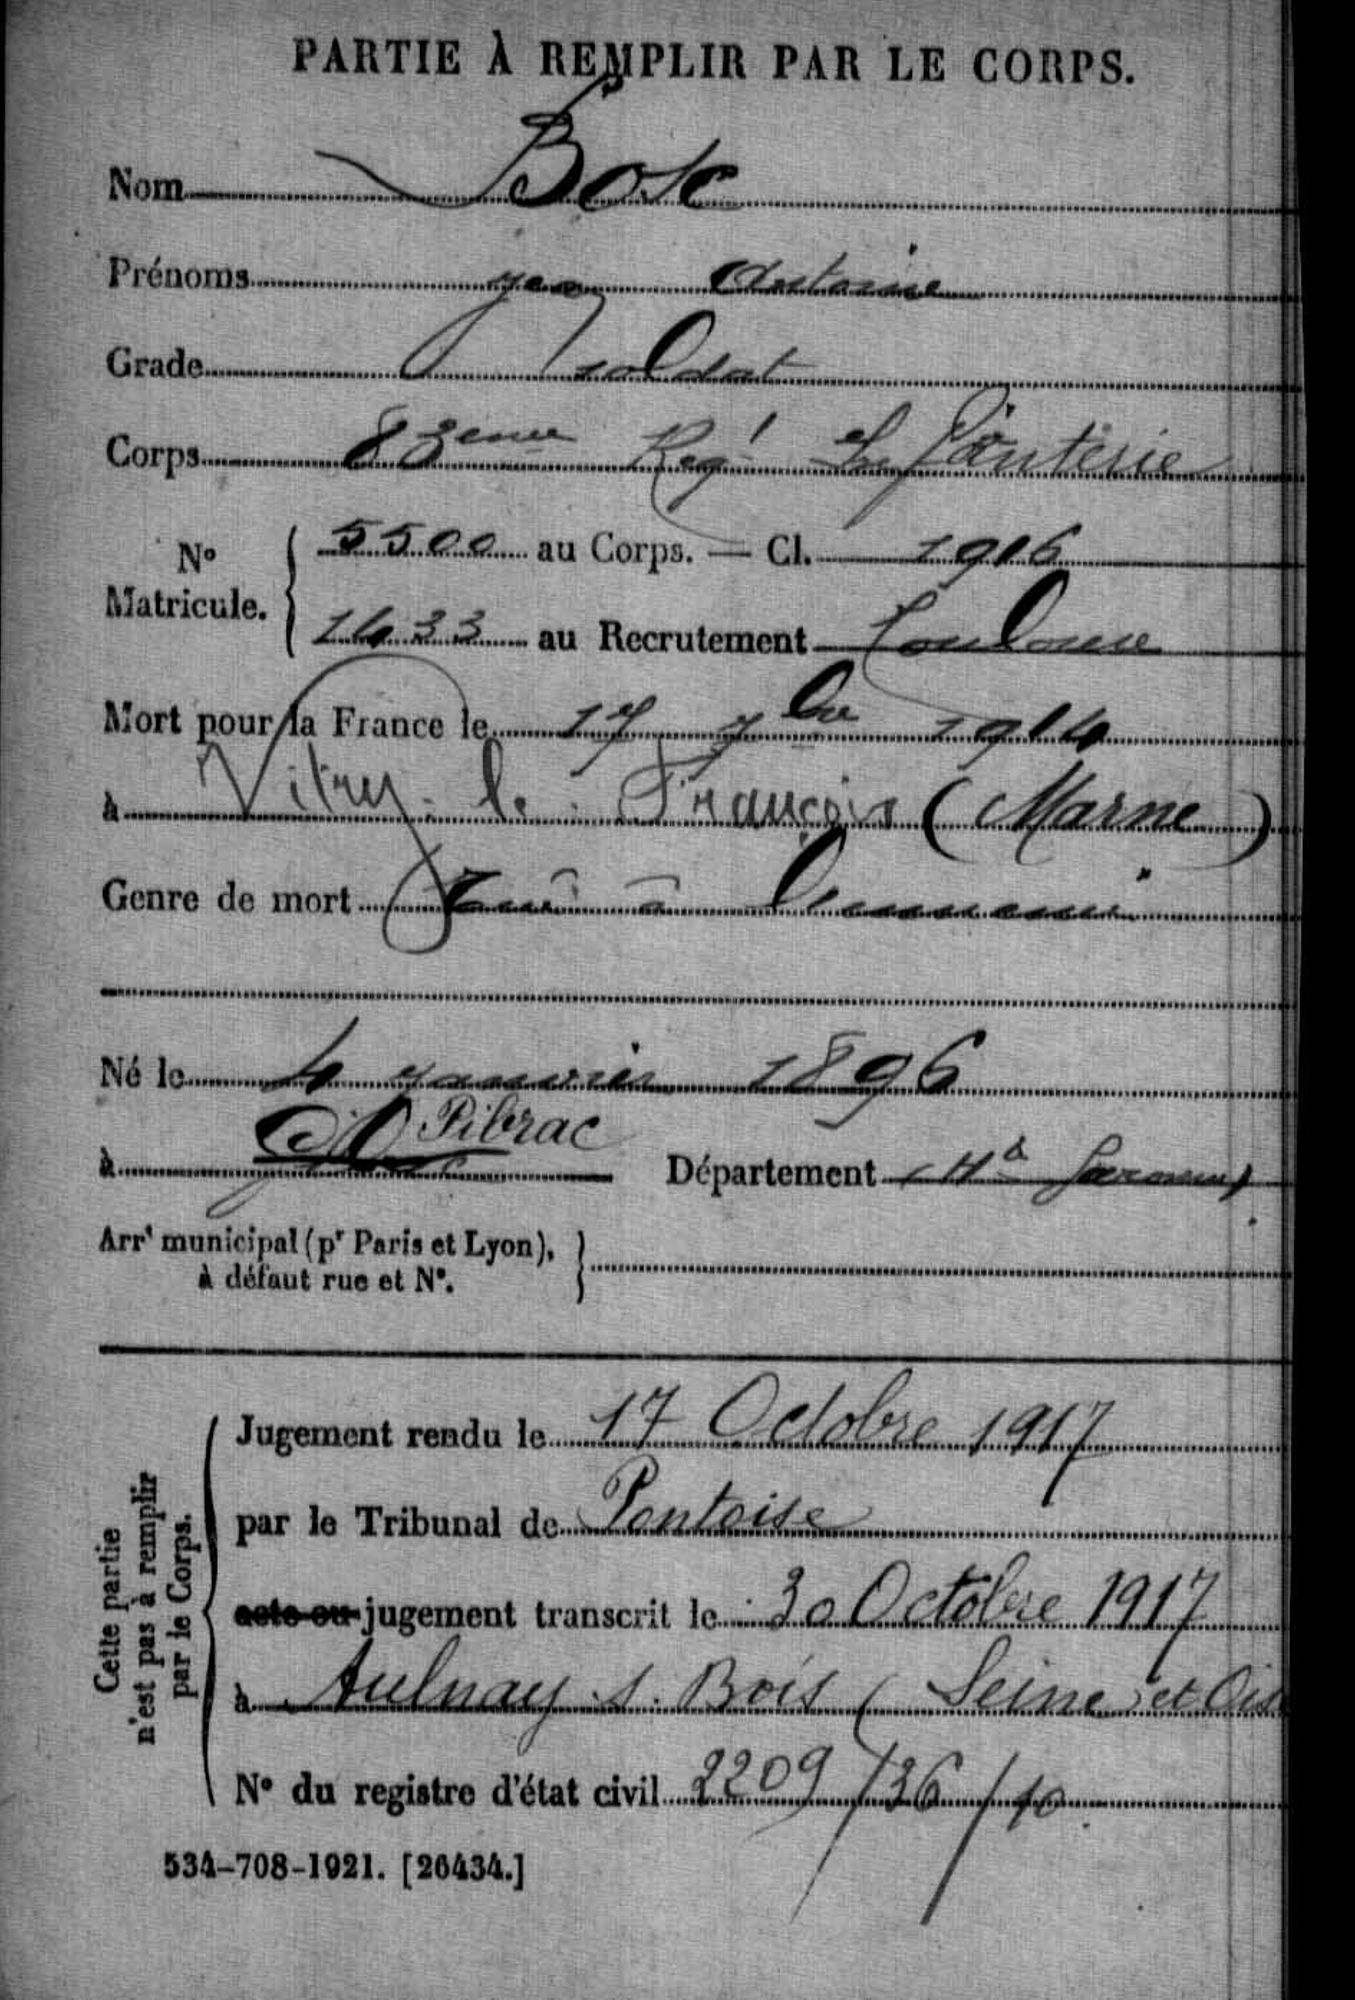 PARTIE À REMPLIR PAR LE CORPS.
Nom Bosc
Prénoms Jean Antoine
Grade soldat
Corps 83eme Regt Infanterie
No Matricule. { 5500 au Corps. — Cl. 1916
1433 au Recrutement Toulouse
Mort pour la France le 17 7bre 1914
à Vitry-le-François (Marne)
Genre de mort Tué à l'ennemi
Né le 4 janvier 1896
à Pibrac Département (Hte Garonne)
Arrt municipal (pr Paris et Lyon), à défaut rue et No. }
Cette partie n'est pas à remplir par le Corps.
Jugement rendu le 17 Octobre 1917
par le Tribunal de Pontoise
acte ou jugement transcrit le 30 Octobre 1917
à Aulnay s. Bois (Seine et Ois
No du registre d'état civil 2209/36/10
534-708-1921. [26434.]